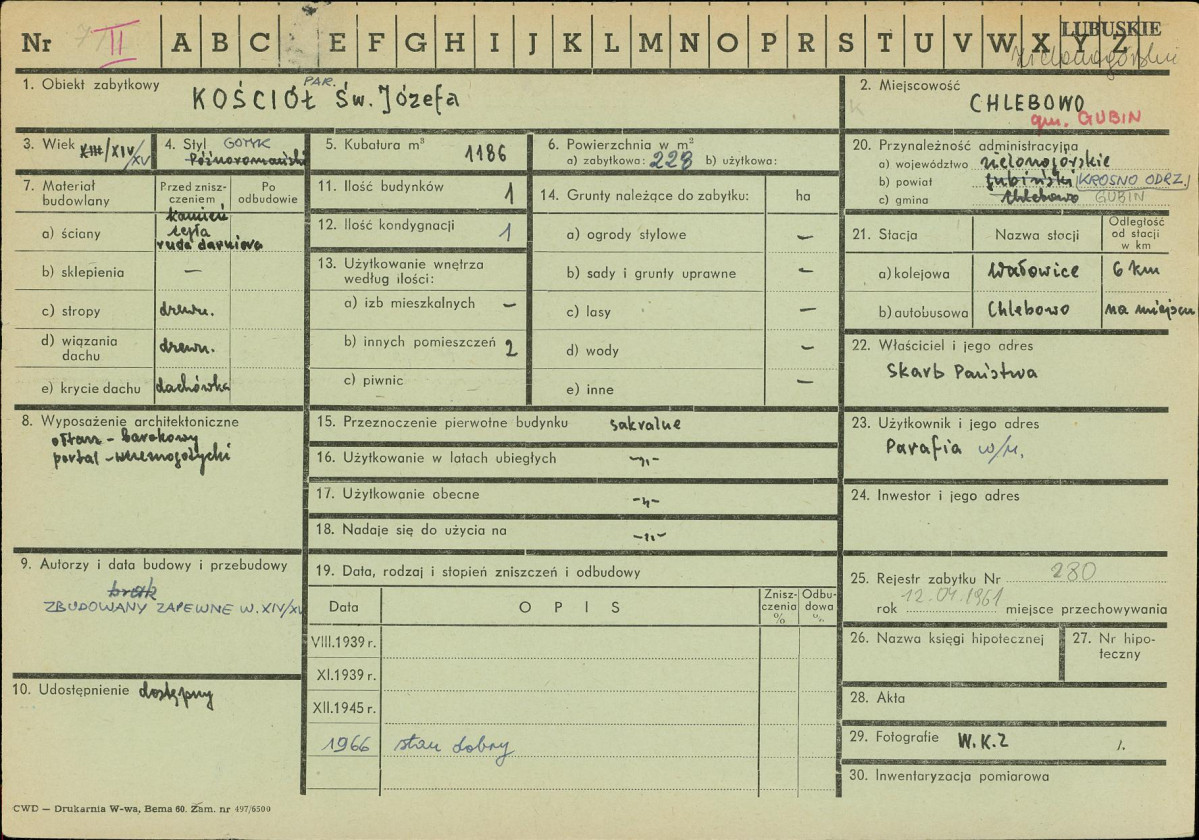 LUBUSKIE
Nr II A B C E F G H I J K L M N O P R S T U V W X Y Z
zielonogórskie
1. Obiekt zabytkowy
PAR.
KOŚCIÓŁ Św. Józefa
2. Miejscowość
CHLEBOWO
gm. GUBIN
3. Wiek XIII/XIV/XV
4. Styl GOTYK
Późnoromański
5. Kubatura m³ 1186
6. Powierzchnia w m²
a) zabytkowa: 223 b) użytkowa:
20. Przynależność administracyjna
a) województwo zielonogórskie
b) powiat gubiński (KROSNO ODRZ.)
c) gmina Chlebowo GUBIN
7. Materiał budowlany
Przed zniszczeniem
Po odbudowie
a) ściany kamień
cegła
ruda darniowa
b) sklepienia —
c) stropy drewn.
d) wiązania dachu drewn.
e) krycie dachu dachówka
11. Ilość budynków 1
12. Ilość kondygnacji 1
13. Użytkowanie wnętrza
według ilości:
a) izb mieszkalnych —
b) innych pomieszczeń 2
c) piwnic
14. Grunty należące do zabytku: ha
a) ogrody stylowe —
b) sady i grunty uprawne —
c) lasy —
d) wody —
e) inne —
21. Stacja Nazwa stacji Odległość od stacji w km
a) kolejowa Wałowice 6 km
b) autobusowa Chlebowo na miejscu
22. Właściciel i jego adres
Skarb Państwa
8. Wyposażenie architektoniczne
ołtarz - barokowy
portal - wczesnogotycki
15. Przeznaczenie pierwotne budynku sakralne
16. Użytkowanie w latach ubiegłych -"-
17. Użytkowanie obecne -"-
18. Nadaje się do użycia na -"-
23. Użytkownik i jego adres
Parafia w/m.
24. Inwestor i jego adres
9. Autorzy i data budowy i przebudowy
brak
ZBUDOWANY ZAPEWNE W. XIV/XV
10. Udostępnienie dostępny
19. Data, rodzaj i stopień zniszczeń i odbudowy
Data OPIS Zniszczenia % Odbudowa %
VIII.1939 r.
XI.1939 r.
XII.1945 r.
1966 stan dobry
25. Rejestr zabytku Nr 280
rok 12.04.1961 miejsce przechowywania
26. Nazwa księgi hipotecznej
27. Nr hipoteczny
28. Akta
29. Fotografie W.K.Z 1.
30. Inwentaryzacja pomiarowa
CWD — Drukarnia W-wa, Bema 60. Zam. nr 497/6500